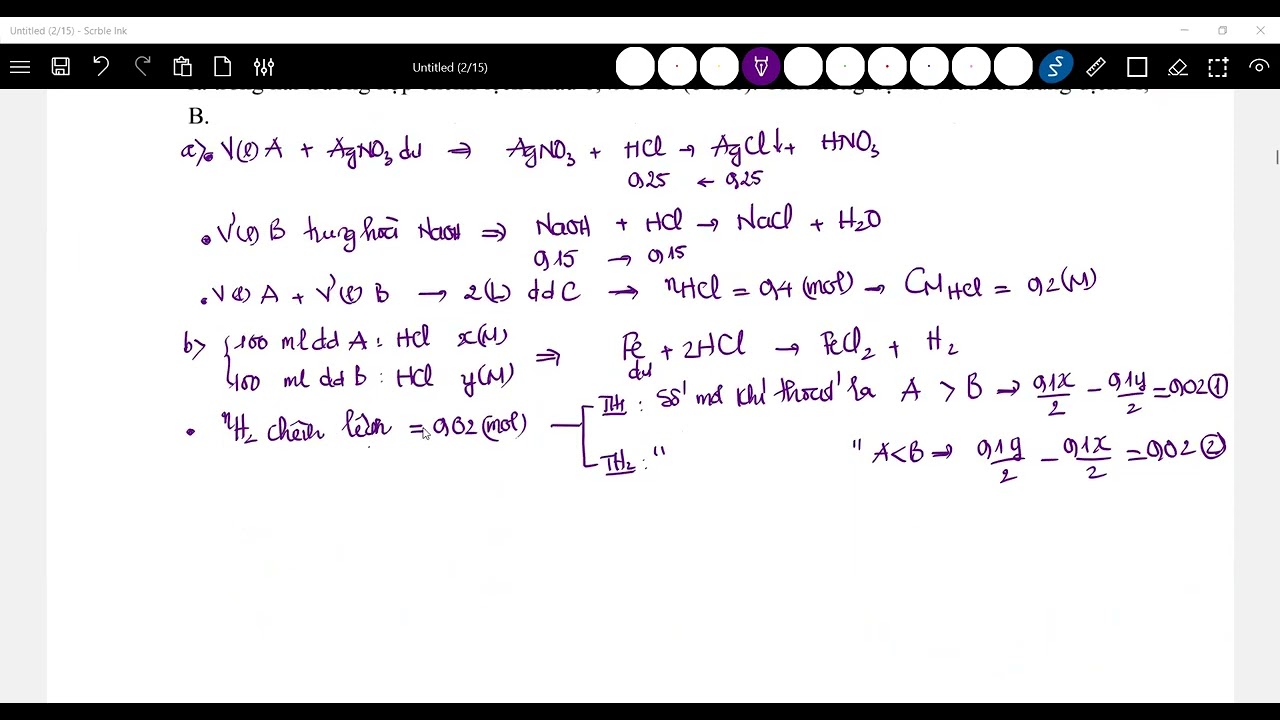 Untitled (2/15) - Scrble Ink
Untitled (2/15)
B.
a) • V(l) A + AgNO3 dư ⇒ AgNO3 + HCl → AgCl↓ + HNO3
0,25 ← 0,25
• V'(l) B trung hoà NaOH ⇒ NaOH + HCl → NaCl + H2O
0,15 → 0,15
• V(l) A + V'(l) B → 2(L) ddC → nHCl = 0,4 (mol) → CM HCl = 0,2(M)
b) { 100 ml dd A : HCl x(M)
100 ml dd B : HCl y(M) ⇒ Fe + 2HCl → FeCl2 + H2
dư
• nH2 chênh lệch = 0,02 (mol)
TH1 : Số mol khí thoát ra A > B → 0,1x/2 - 0,1y/2 = 0,02 ①
TH2 : " " A < B → 0,1y/2 - 0,1x/2 = 0,02 ②